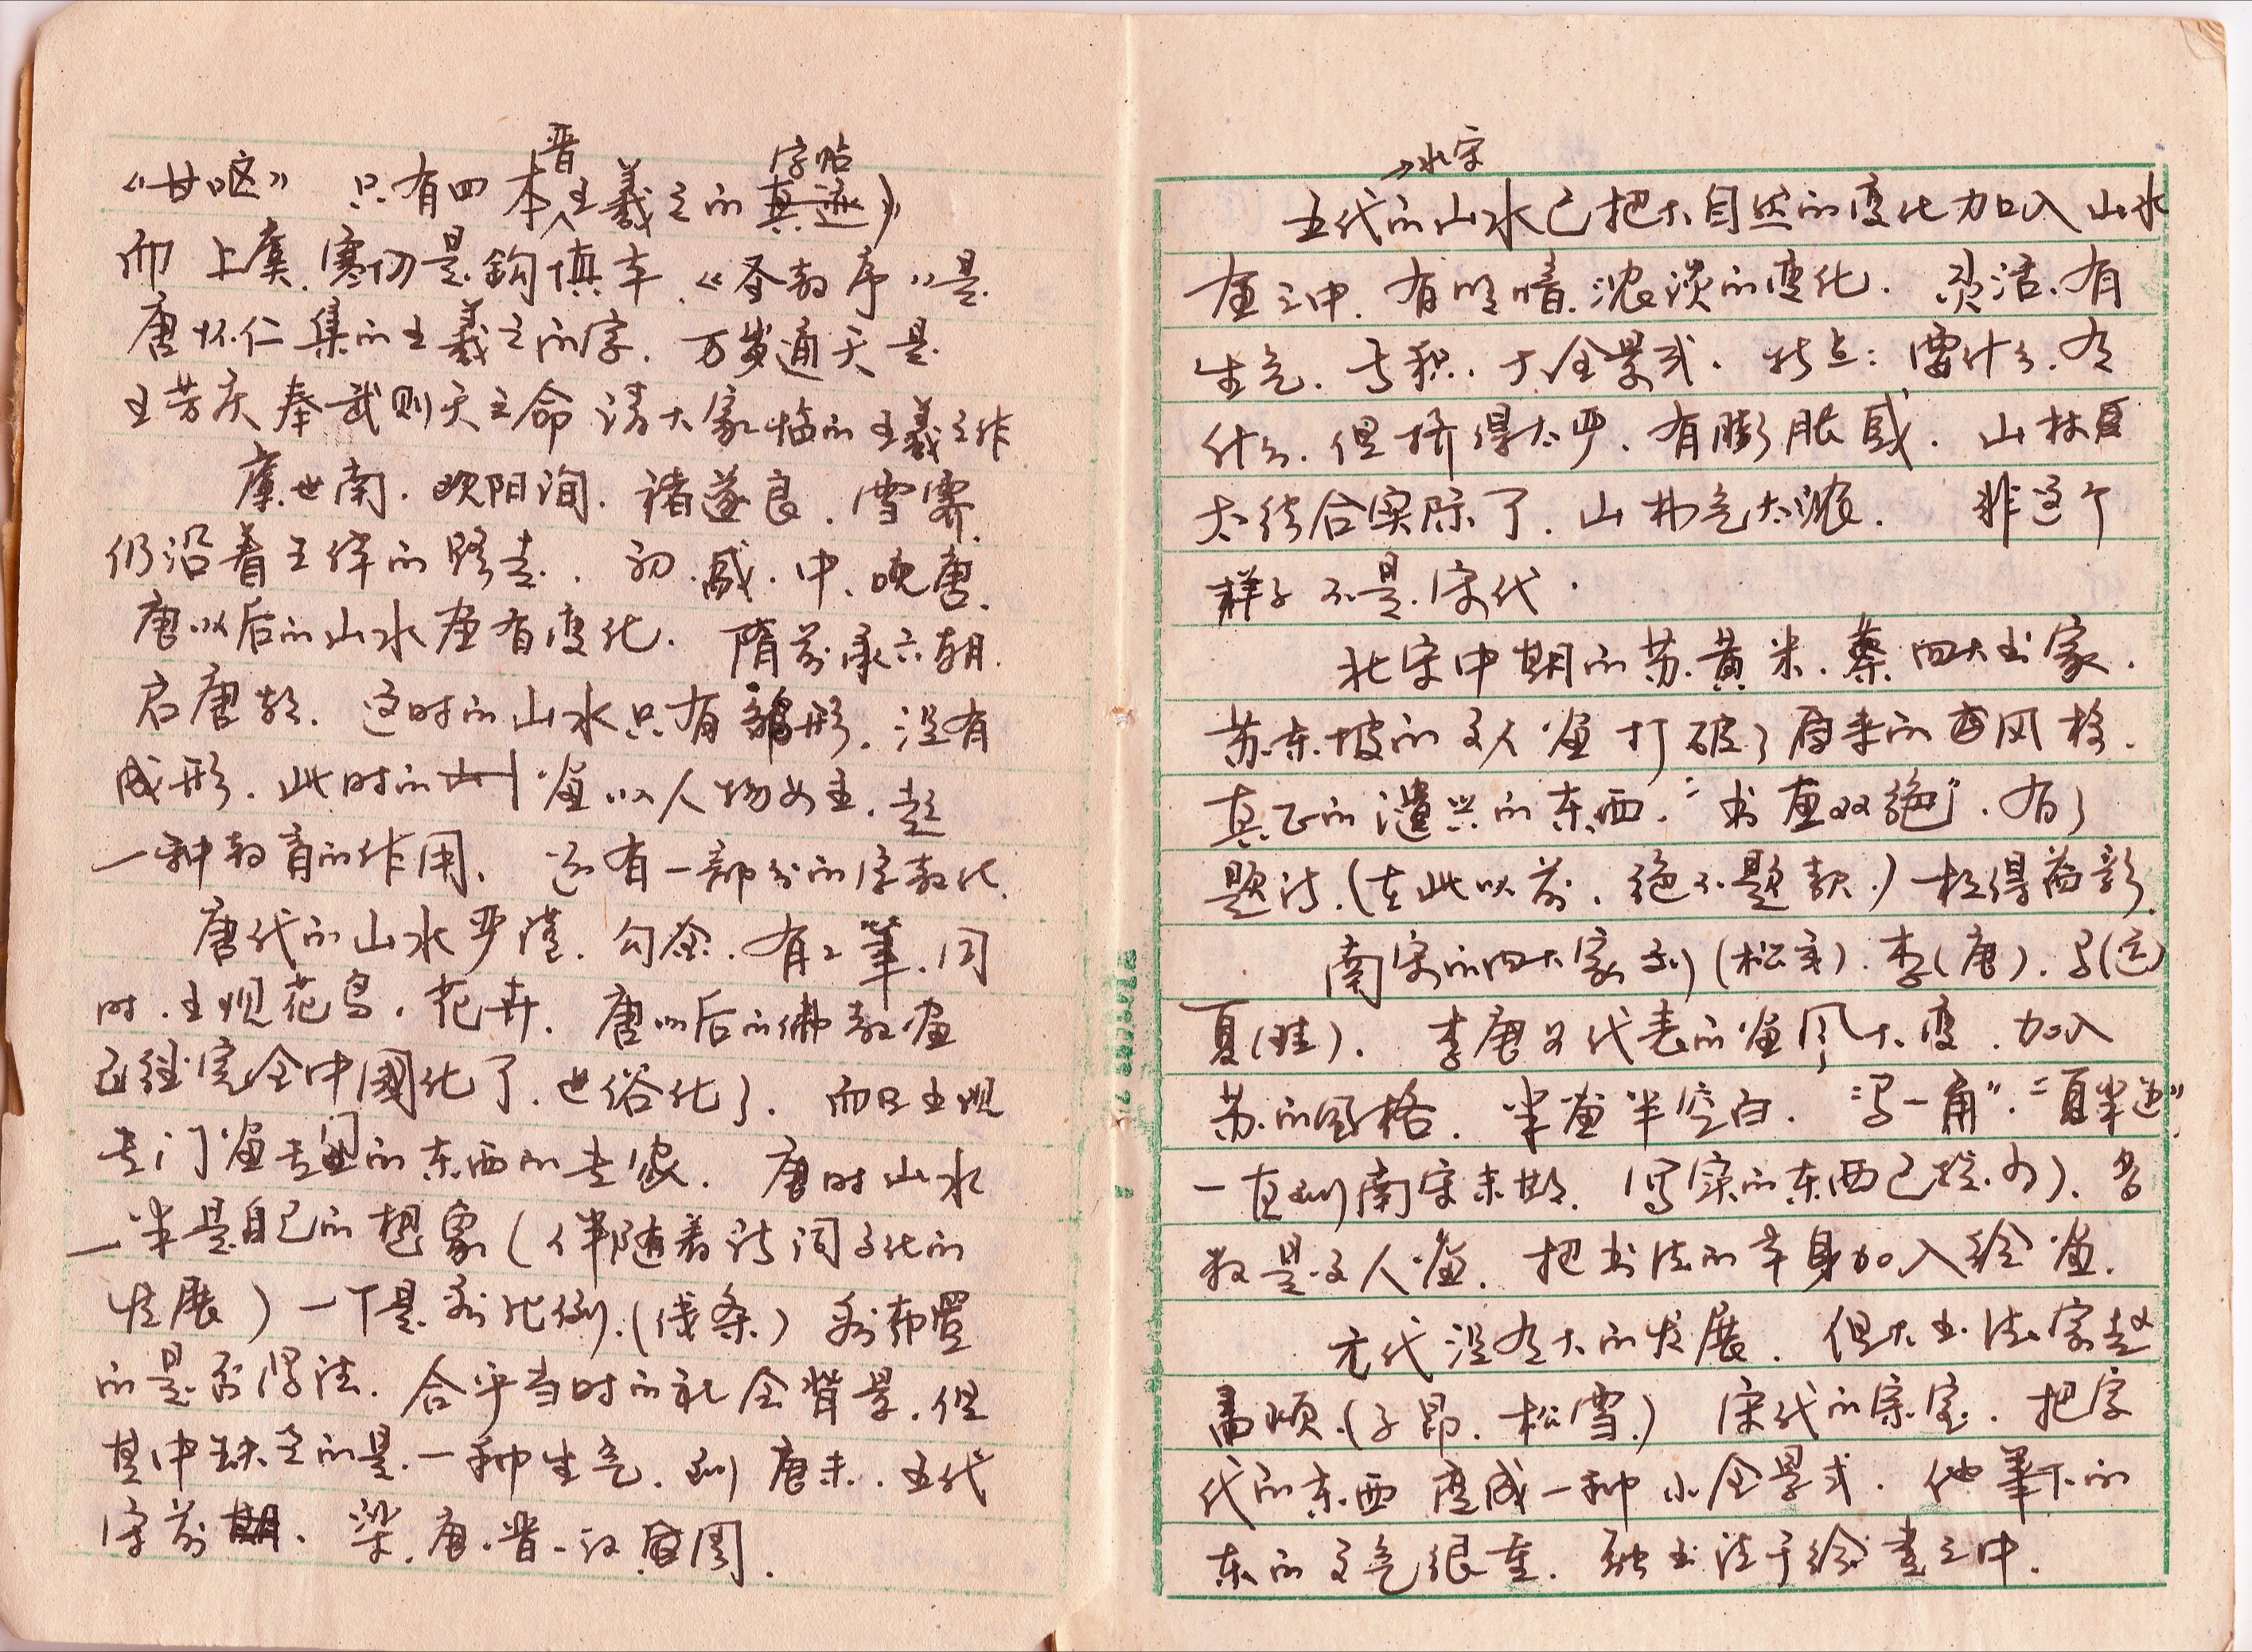 《甘呕》 只有四本晋王羲之的字帖》
而上虞.寒切是鈎慎本.《圣教序》是
唐怀仁集的王羲之的字.万岁通天是
王芳庆奉武则天之命请大家临的王羲之作
虞世南.欧阳询.褚遂良.雪霁.
仍沿着王维的路走.初.盛.中.晚唐.
唐以后的山水画有变化.隋前承六朝.
启唐朝.这时的山水只有雏形.没有
成形.此时的画以人物为主.起
一种教育的作用.还有一部分的宗教化.
唐代的山水严谨.勾金.有工筆.同
时.出现花鸟.花卉.唐以后的佛教画
已经完全中國化了.世俗化了.而且出现
专门画专门的东西的专家.唐时山水
一半是自己的想象(伴随着诗词文化的
发展)一下是看比例.(线条)看布置
的是否得法.合乎当时的社会背景.但
其中缺乏的是.一种生气.到唐末.五代
宋前期.梁.唐.晋.汉.周.
→北宋
五代的山水已把大自然的变化加入山水
画之中.有明暗.浓淡的变化.灵活.有
生气.与积.大全景式.特点:要什么.有
什么.但挤得太严.有膨胀感.山林
太结合实际了.山林气太浓.非这个
样子不是.宋代.
北宋中期的苏.黄.米.蔡.四大书家.
苏东坡的文人画打破了原来的画风格.
真正的遣兴的东西."书画双绝".有了
题诗.(在此以前.绝不题款.)相得益彰.
南宋的四大家刘(松年).李(唐).马(远)
夏(珪).李唐为代表的画风大变.加入
苏.的风格.半画半空白."马一角"."夏半边".
一直到南宋末期.写实的东西已经少).多
数是文人画.把书法的本身加入绘画.
元代没有大的发展.但大书法家赵
孟頫.(子昂.松雪.)宋代的宗室.把宋
代的东西变成一种小全景式.他筆下的
东的文气很重.融书法于绘画之中.